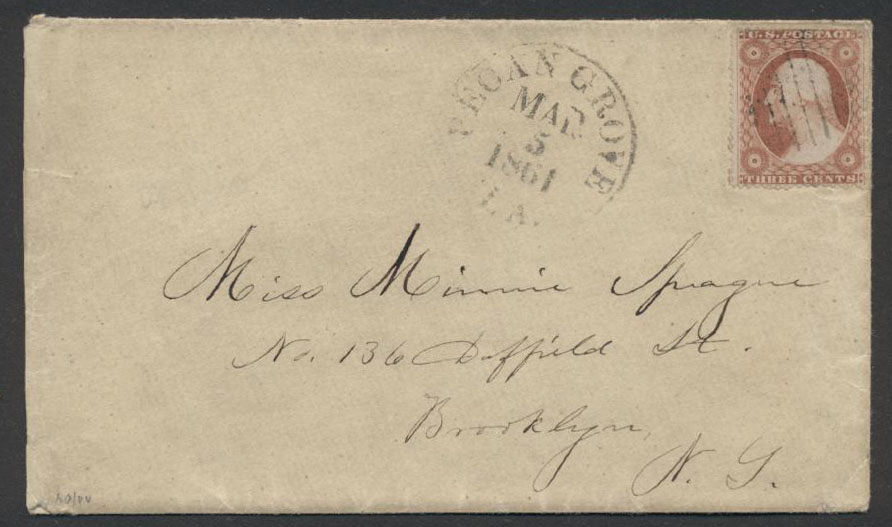 PECAN GROVE
MAR
5
1861
LA.
U.S. POSTAGE
THREE CENTS
Miss Minnie Sprague
No. 136 Duffield St.
Brooklyn
N. Y.